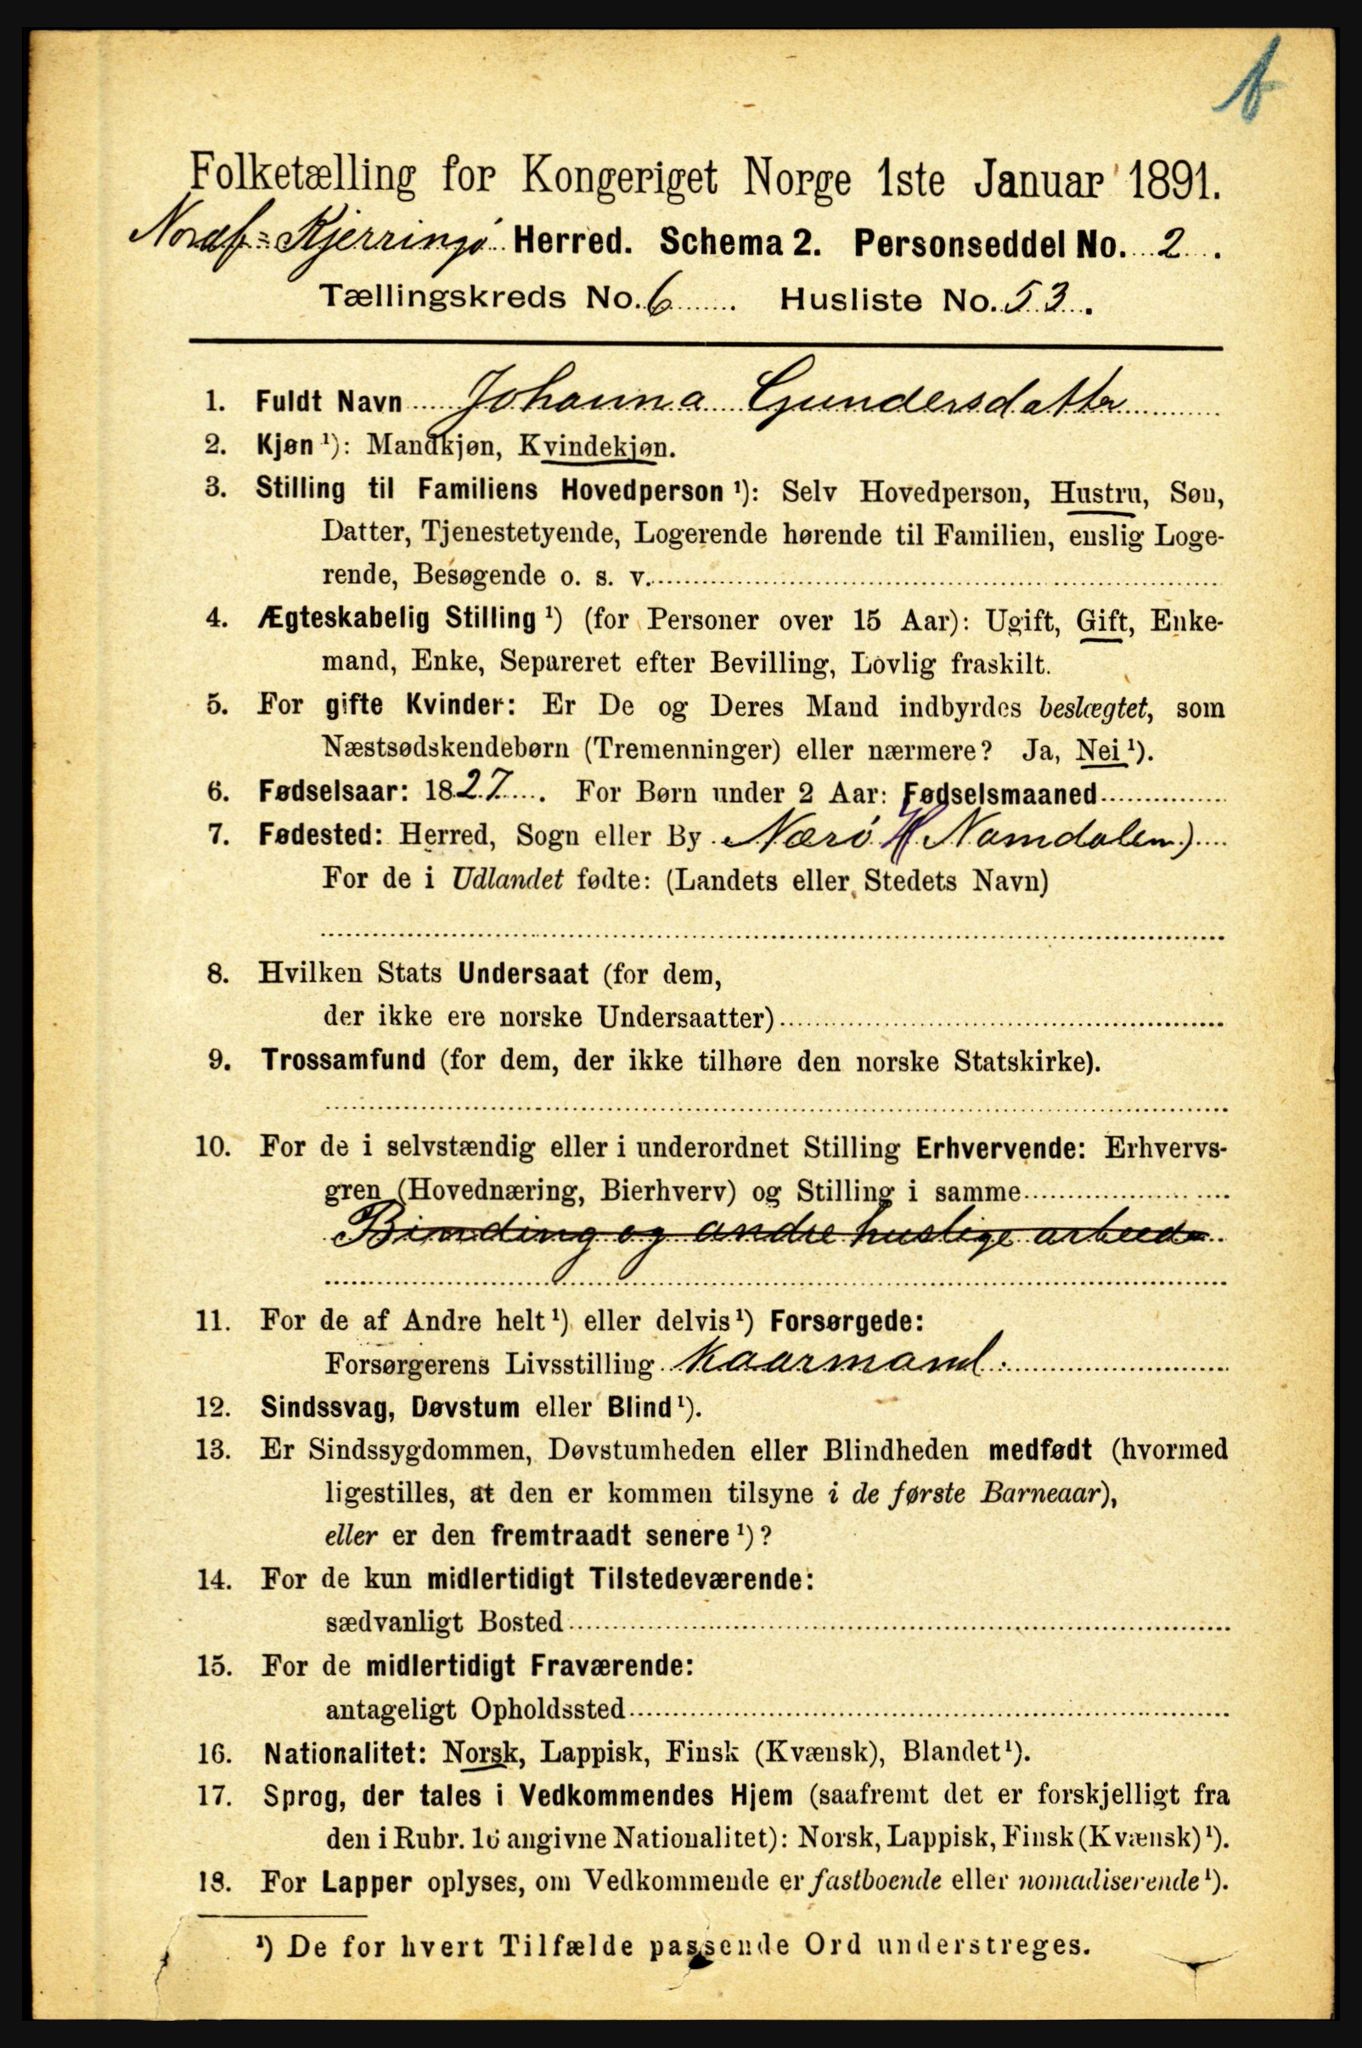 Folketælling for Kongeriget Norge 1ste Januar 1891.
Nordf-Kjerringø Herred. Schema 2. Personseddel No. 2.
Tællingskreds No. 6. Husliste No. 53.
1. Fuldt Navn Johanna Gundersdatter
2. Kjøn ¹): Mandkjøn, Kvindekjøn.
3. Stilling til Familiens Hovedperson ¹): Selv Hovedperson, Hustru, Søn,
Datter, Tjenestetyende, Logerende hørende til Familien, enslig Loge-
rende, Besøgende o. s. v.
4. Ægteskabelig Stilling ¹) (for Personer over 15 Aar): Ugift, Gift, Enke-
mand, Enke, Separeret efter Bevilling, Lovlig fraskilt.
5. For gifte Kvinder: Er De og Deres Mand indbyrdes beslægtet, som
Næstsødskendebørn (Tremenninger) eller nærmere? Ja, Nei ¹).
6. Fødselsaar: 1827. For Børn under 2 Aar: Fødselsmaaned
7. Fødested: Herred, Sogn eller By Nærö Namdalen)
For de i Udlandet fødte: (Landets eller Stedets Navn)
8. Hvilken Stats Undersaat (for dem,
der ikke ere norske Undersaatter)
9. Trossamfund (for dem, der ikke tilhøre den norske Statskirke).
10. For de i selvstændig eller i underordnet Stilling Erhvervende: Erhvervs-
gren (Hovednæring, Bierhverv) og Stilling i samme
Binding og andre huslige arbeide
11. For de af Andre helt ¹) eller delvis ¹) Forsørgede:
Forsørgerens Livsstilling Kaarmand.
12. Sindssvag, Døvstum eller Blind ¹).
13. Er Sindssygdommen, Døvstumheden eller Blindheden medfødt (hvormed
ligestilles, at den er kommen tilsyne i de første Barneaar),
eller er den fremtraadt senere ¹)?
14. For de kun midlertidigt Tilstedeværende:
sædvanligt Bosted
15. For de midlertidigt Fraværende:
antageligt Opholdssted
16. Nationalitet: Norsk, Lappisk, Finsk (Kvænsk), Blandet ¹).
17. Sprog, der tales i Vedkommendes Hjem (saafremt det er forskjelligt fra
den i Rubr. 16 angivne Nationalitet): Norsk, Lappisk, Finsk (Kvænsk) ¹).
18. For Lapper oplyses, om Vedkommende er fastboende eller nomadiserende ¹).
¹) De for hvert Tilfælde passende Ord understreges.